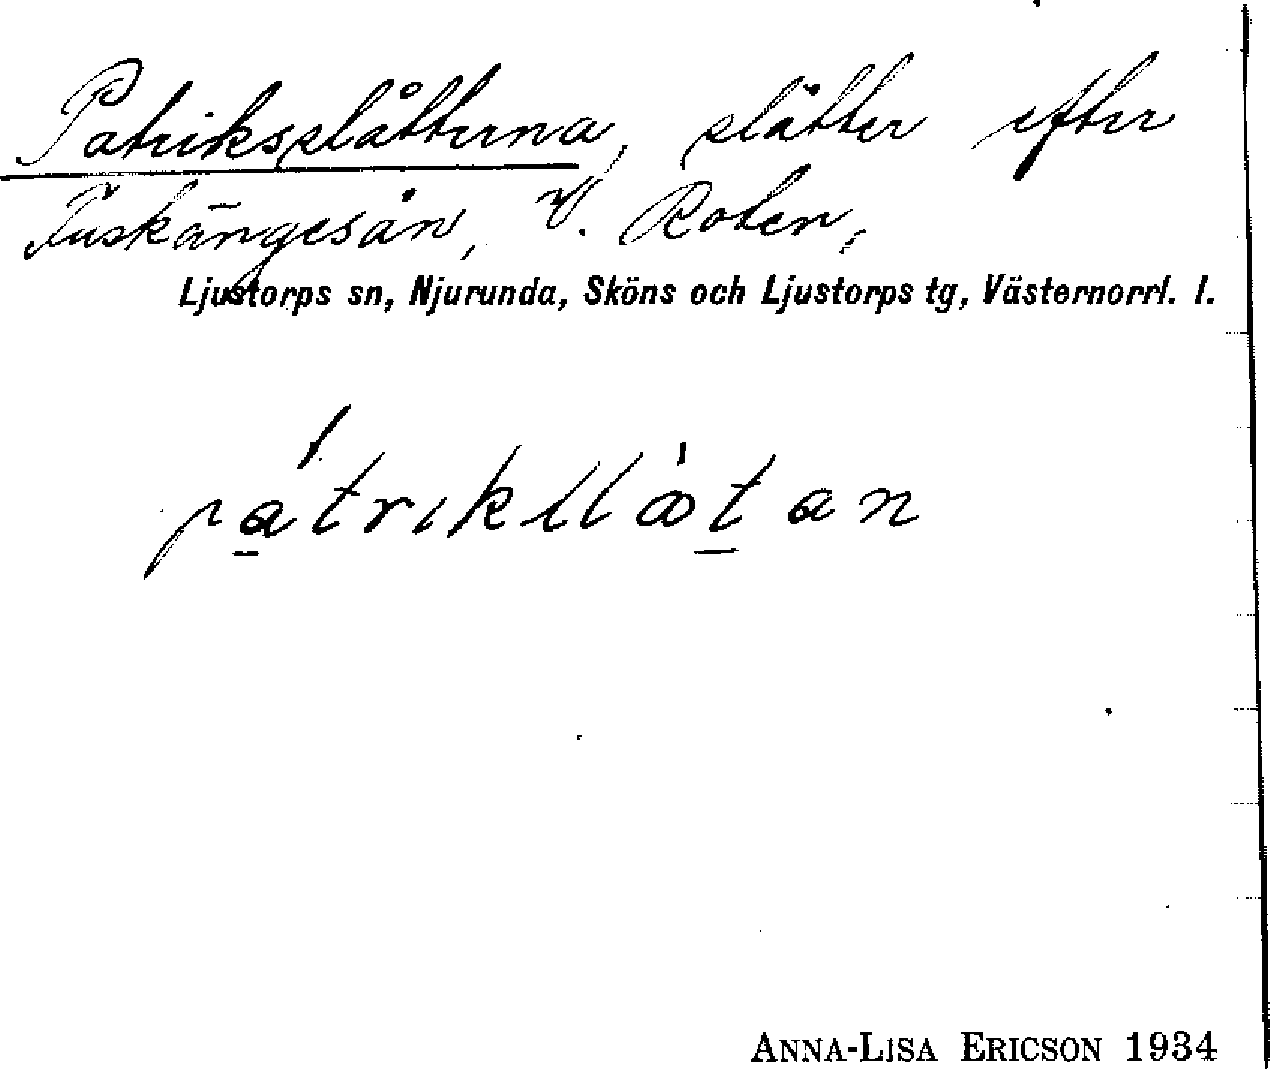 Patriksslåtterna, slåtter efter
Fuskängesån, V. Roten,
Ljustorps sn, Njurunda, Sköns och Ljustorps tg, Västernorrl. l.
ANNA-LISA ERICSON 1934